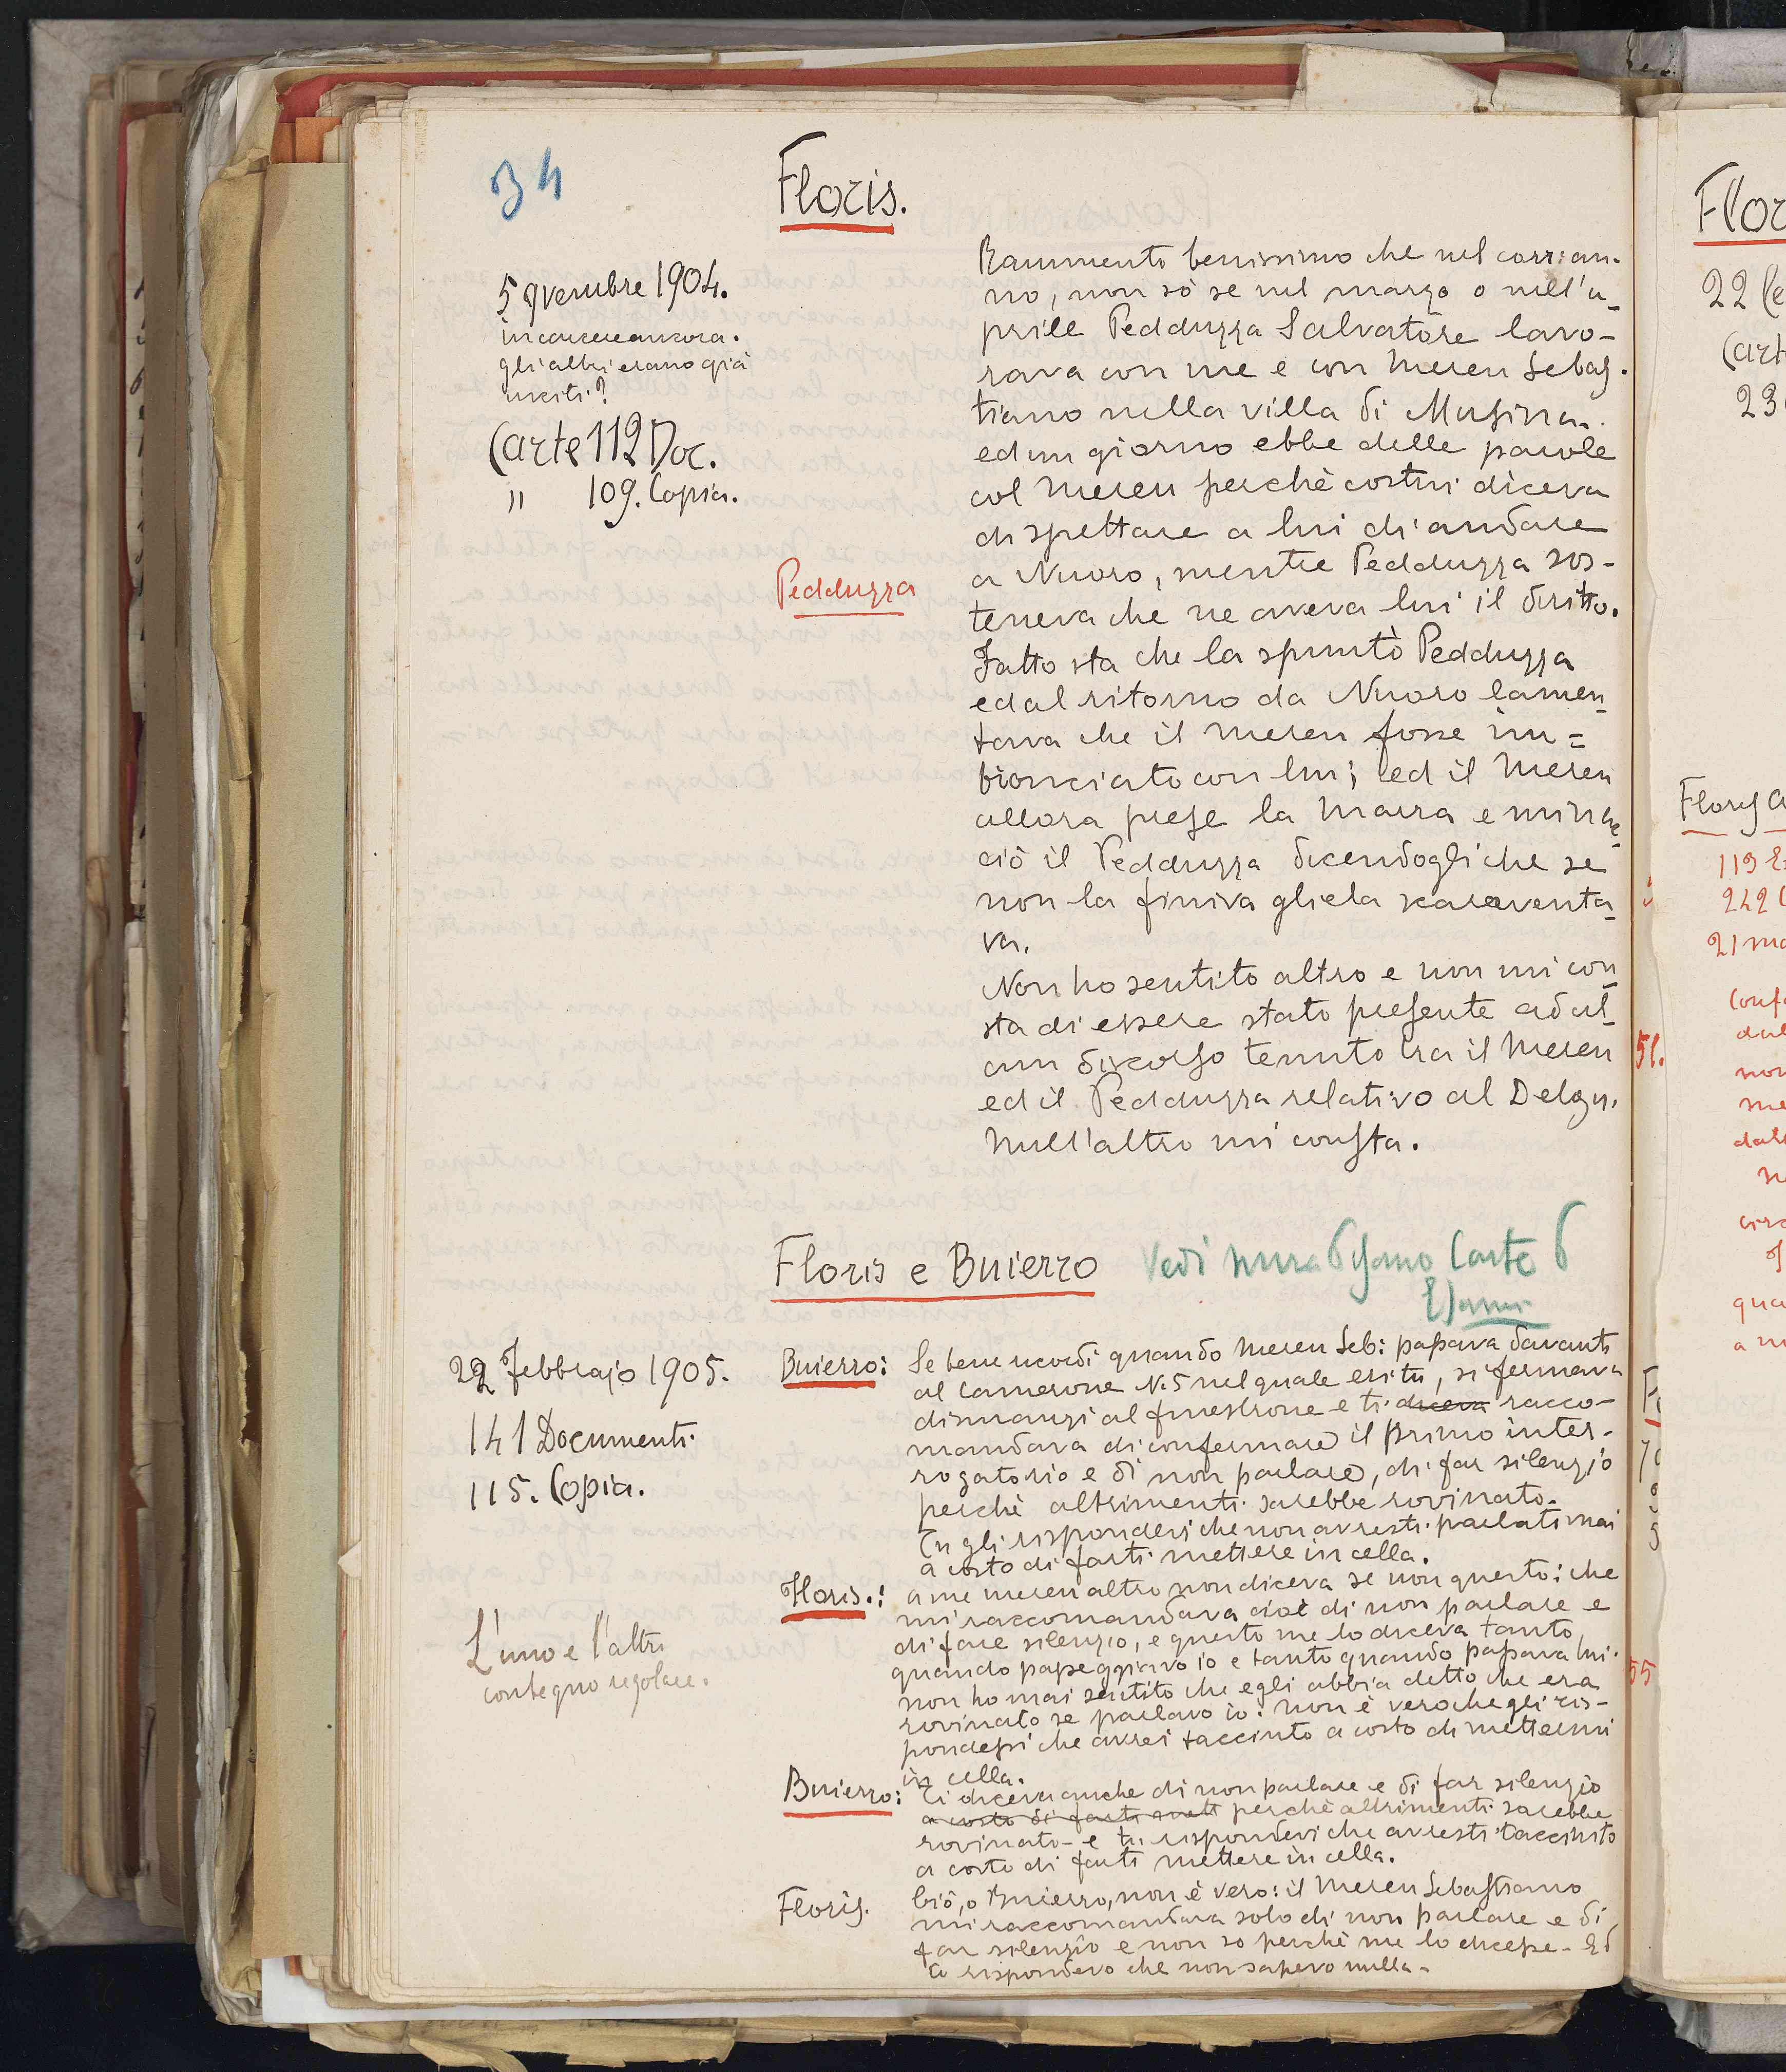 34
Floris.
5 9vembre 1904.
in carcere ancora.
gli altri erano già
usciti?
Carte 112 Doc.
" 109. Copia.
Rammento benissimo che nel corr: an-
no, non sò se nel marzo o nell'a-
prile Pedduzza Salvatore lavo-
rava con me e con Mereu Sebas-
tiano nella villa di Musina.
ed un giorno ebbe delle parole
col Mereu perchè costui diceva
di spettare a lui di andare
a Nuoro, mentre Pedduzza sos-
Pedduzza
teneva che ne aveva lui il diritto.
Fatto sta che la spuntò Pedduzza
ed al ritorno da Nuoro lamen-
tava che il Mereu fosse im=
bronciato con lui; ed il Mereu
allora prese la marra e minac-
ciò il Pedduzza dicendogli che se
non la finiva gliela scaraventa-
va.
Non ho sentito altro e non mi con-
sta di essere stato presente ad al-
cun discorso tenuto tra il Mereu
ed il Pedduzza relativo al Delogu.
Null'altro mi consta.
Floris e Buierro
Vedi Carte 6
Esami
22 Febbrajo 1905.
141 Documenti.
115. Copia.
L'uno e l'altro
contegno regolare.
Buierro: Se bene ricordi quando Mereu Seb: passava davanti
al Camerone N. 5 nel quale eri tu, si fermava
dinnanzi al finestrone e ti diceva racco-
mandava di confermare il primo inter-
rogatorio e di non parlare, di far silenzio
perchè altrimenti sarebbe rovinato.
Tu gli rispondevi che non avresti parlato mai
a costo di farti mettere in cella.
Floris.: a me Mereu altro non diceva se non questo: che
mi raccomandava cioè di non parlare e
di fare silenzio, e questo me lo diceva tanto
quando passeggiavo io e tanto quando passava lui.
non ho mai sentito che egli abbia detto che era
rovinato se parlavo io: non è vero che gli ris-
pondessi che avrei tacciuto a costo di mettermi
in cella.
Buierro: Ti diceva anche di non parlare e di far silenzio
a costo di farti mett perchè altrimenti sarebbe
rovinato - e tu rispondevi che avresti tacciuto
a costo di farti mettere in cella.
Floris. Ciò, o Buierro, non è vero: il Mereu Sebastiano
mi raccomandava solo di non parlare e di
far silenzio e non so perchè me lo dicesse - Ed
io rispondevo che non sapevo nulla -
51.
55
Flor
22 Fe
Cart
23
Floris a
119 E
242 C
21 ma
Conf
dal
non
me
dall
circ
qua